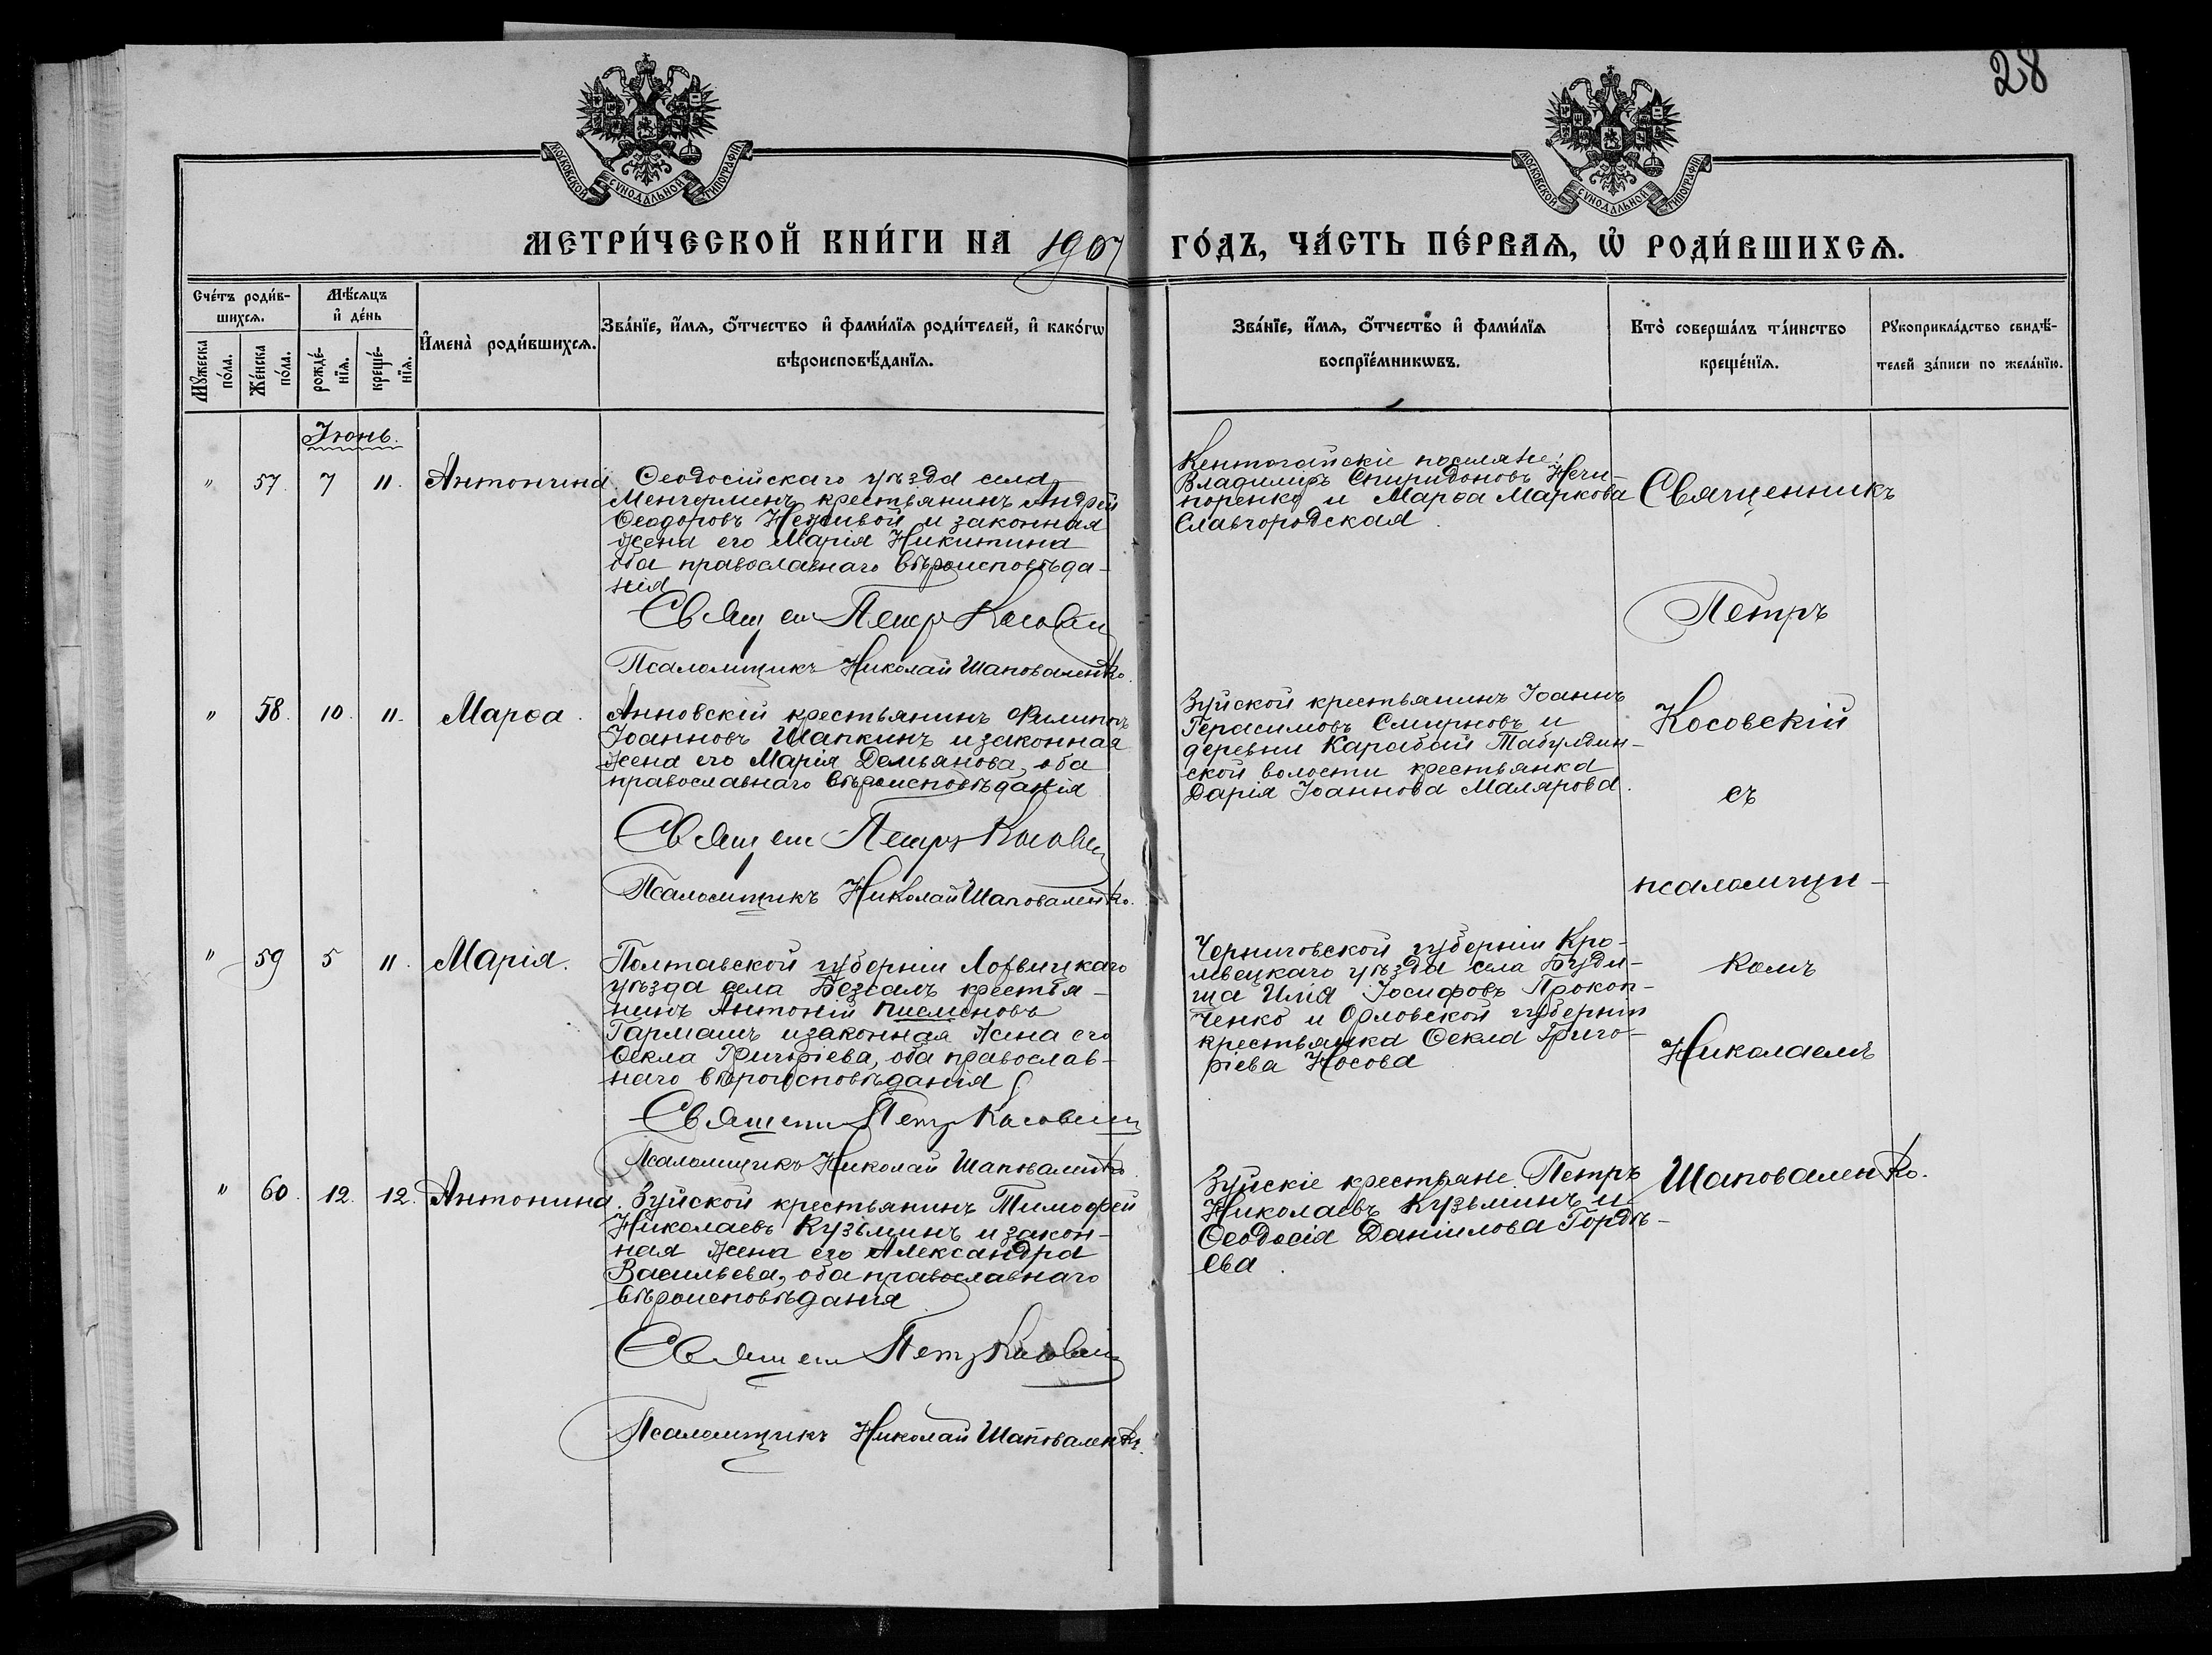 28
МОСКОВСКОЙ СѴНОДАЛЬНОЙ ТИПОГРАФІИ
МОСКОВСКОЙ СѴНОДАЛЬНОЙ ТИПОГРАФІИ
МЕТРИ́ЧЕСКОЙ КНИ́ГИ НА 1907 ГО́ДЪ, ЧА́СТЬ ПЕ́РВАѦ, Ѡ РОДИ́ВШИХСѦ.
Сче́тъ роди́в-
шихсѧ.
Мѹ́жеска по́ла.
Же́нска по́ла.
Мѣ́сѧцъ
и де́нь
рожде́-
нїѧ.
креще́-
нїѧ.
И҆мена̀ роди́вшихсѧ.
Зва́нїе, и҆́мѧ, ѻ҆́тчество и҆ фами́лїѧ роди́телей, и҆ како́гѡ
вѣроисповѣ́данїѧ.
Зва́нїе, и҆́мѧ, ѻ҆́тчество и҆ фами́лїѧ
воспрїе́мникѡвъ.
Кто̀ соверша́лъ та́инство
креще́нїѧ.
Рѹкоприкла́дство свидѣ́-
телей за́писи по жела́нїю.
Іюнь.
" 57. 7 11. Антонина.
Ѳеодосійскаго уѣзда села
Менгерменъ крестьянинъ Андрей
Ѳеодоровъ и законная
жена его Марія Никитина
оба православнаго вѣроисповѣда-
нія
Священ Петр Косовскій
Псаломщикъ Николай Шаповаленко.
Кентогайскіе поселяне:
Владимиръ Спиридоновъ Нечи-
поренко и Марѳа Маркова
Славгородская.
Священникъ
Петръ
" 58. 10. 11. Марѳа.
Анновскій крестьянинъ Филиппъ
Іоанновъ Шапкинъ и законная
жена его Марія Демьянова, оба
православнаго вѣроисповѣданія
Священ Петръ Косовскій
Псаломщикъ Николай Шаповаленко.
Зуйской крестьянинъ Іоаннъ
Герасимовъ Смирновъ и
деревни Карабай Табулдин-
ской волости крестьянка
Дарія Іоаннова Малярова.
Косовскій
съ
псаломщи-
" 59 5 11. Марія.
Полтавской губерніи Лохвицкаго
уѣзда села Безсалъ крестья-
нинъ Антоній Писменовъ
Гармашъ и законная жена его
Ѳекла Григоріева, оба православ-
наго вѣроисповѣданія
Священ Петр Косовскій
Псаломщикъ Николай Шаповаленко
Черниговской губерніи Кро-
левецкаго уѣзда села Буди-
ща Илія Іосифовъ Прокоп-
ченко и Орловской губерніи
крестьянка Ѳекла Григо-
ріева Носова
комъ
Николаемъ
" 60. 12. 12. Антонина.
Зуйской крестьянинъ Тимофей
Николаевъ Кузьминъ и закон-
ная жена его Александра
Васильева, оба православнаго
вѣроисповѣданія.
Священ Петр Косовскій
Псаломщикъ Николай Шаповаленко.
Зуйскіе крестьяне Петръ
Николаевъ Кузьминъ и
Ѳеодосія Даніилова Гордѣ-
ева.
Шаповаленко.